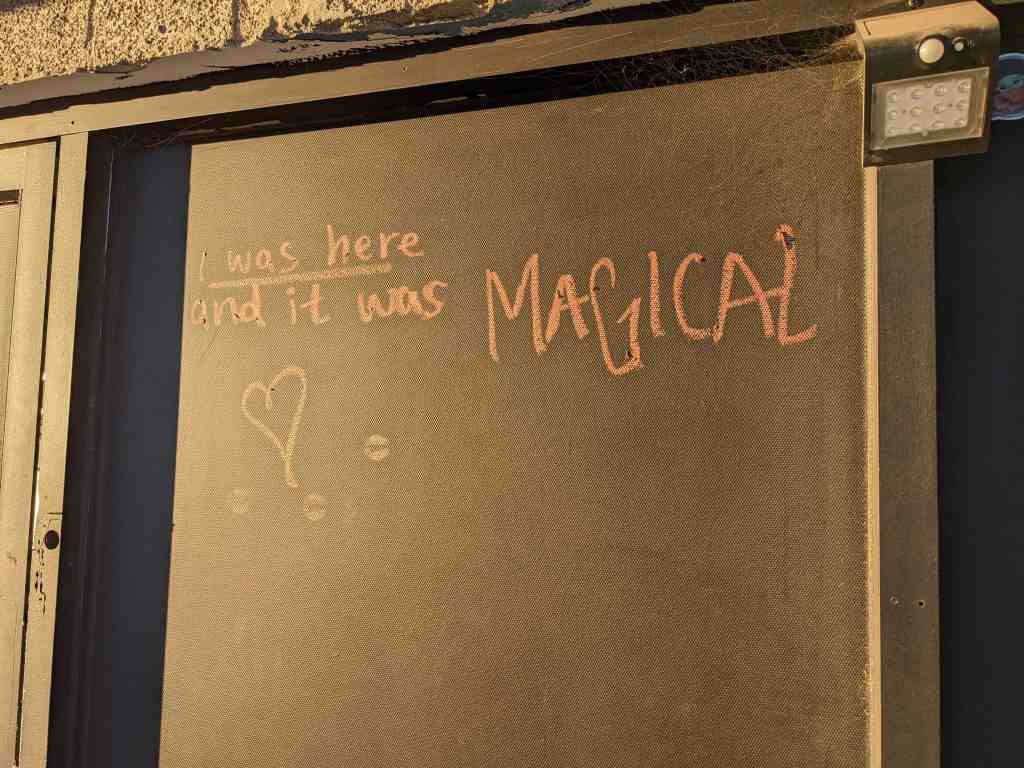 I was here
and it was MAGICAL